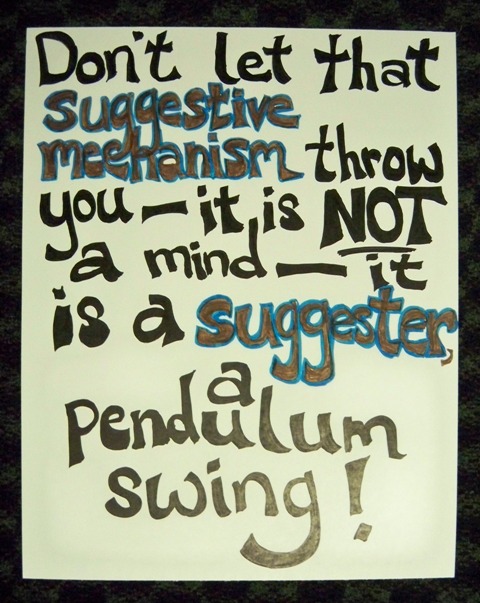 Don't let that
suggestive
mechanism throw
you — it is NOT
a mind — it
is a suggester,
a
pendulum
swing!